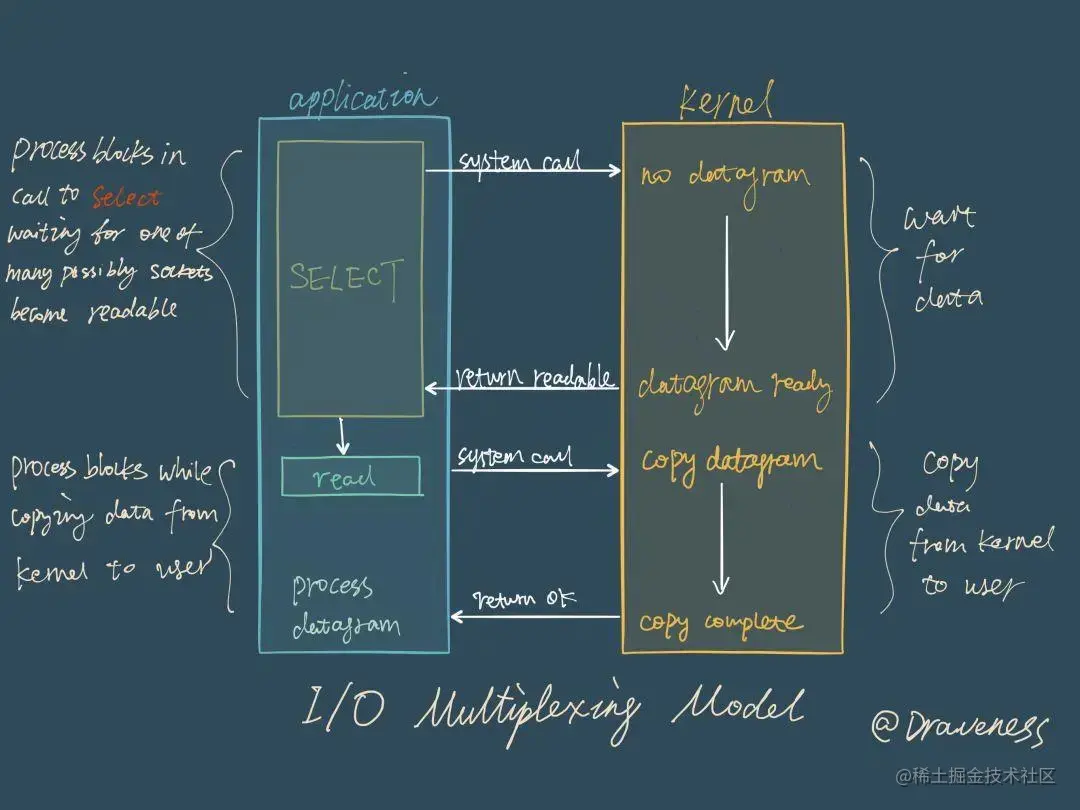 application
kernel
process blocks in
call to select
waiting for one of
many possibly sockets
become readable
SELECT
system call
no datagram
wait
for
data
return readable
datagram ready
process blocks while
copying data from
kernel to user
read
system call
copy datagram
copy
data
from kernel
to user
process
datagram
return OK
copy complete
I/O Multiplexing Model
@Draveness
@稀土掘金技术社区